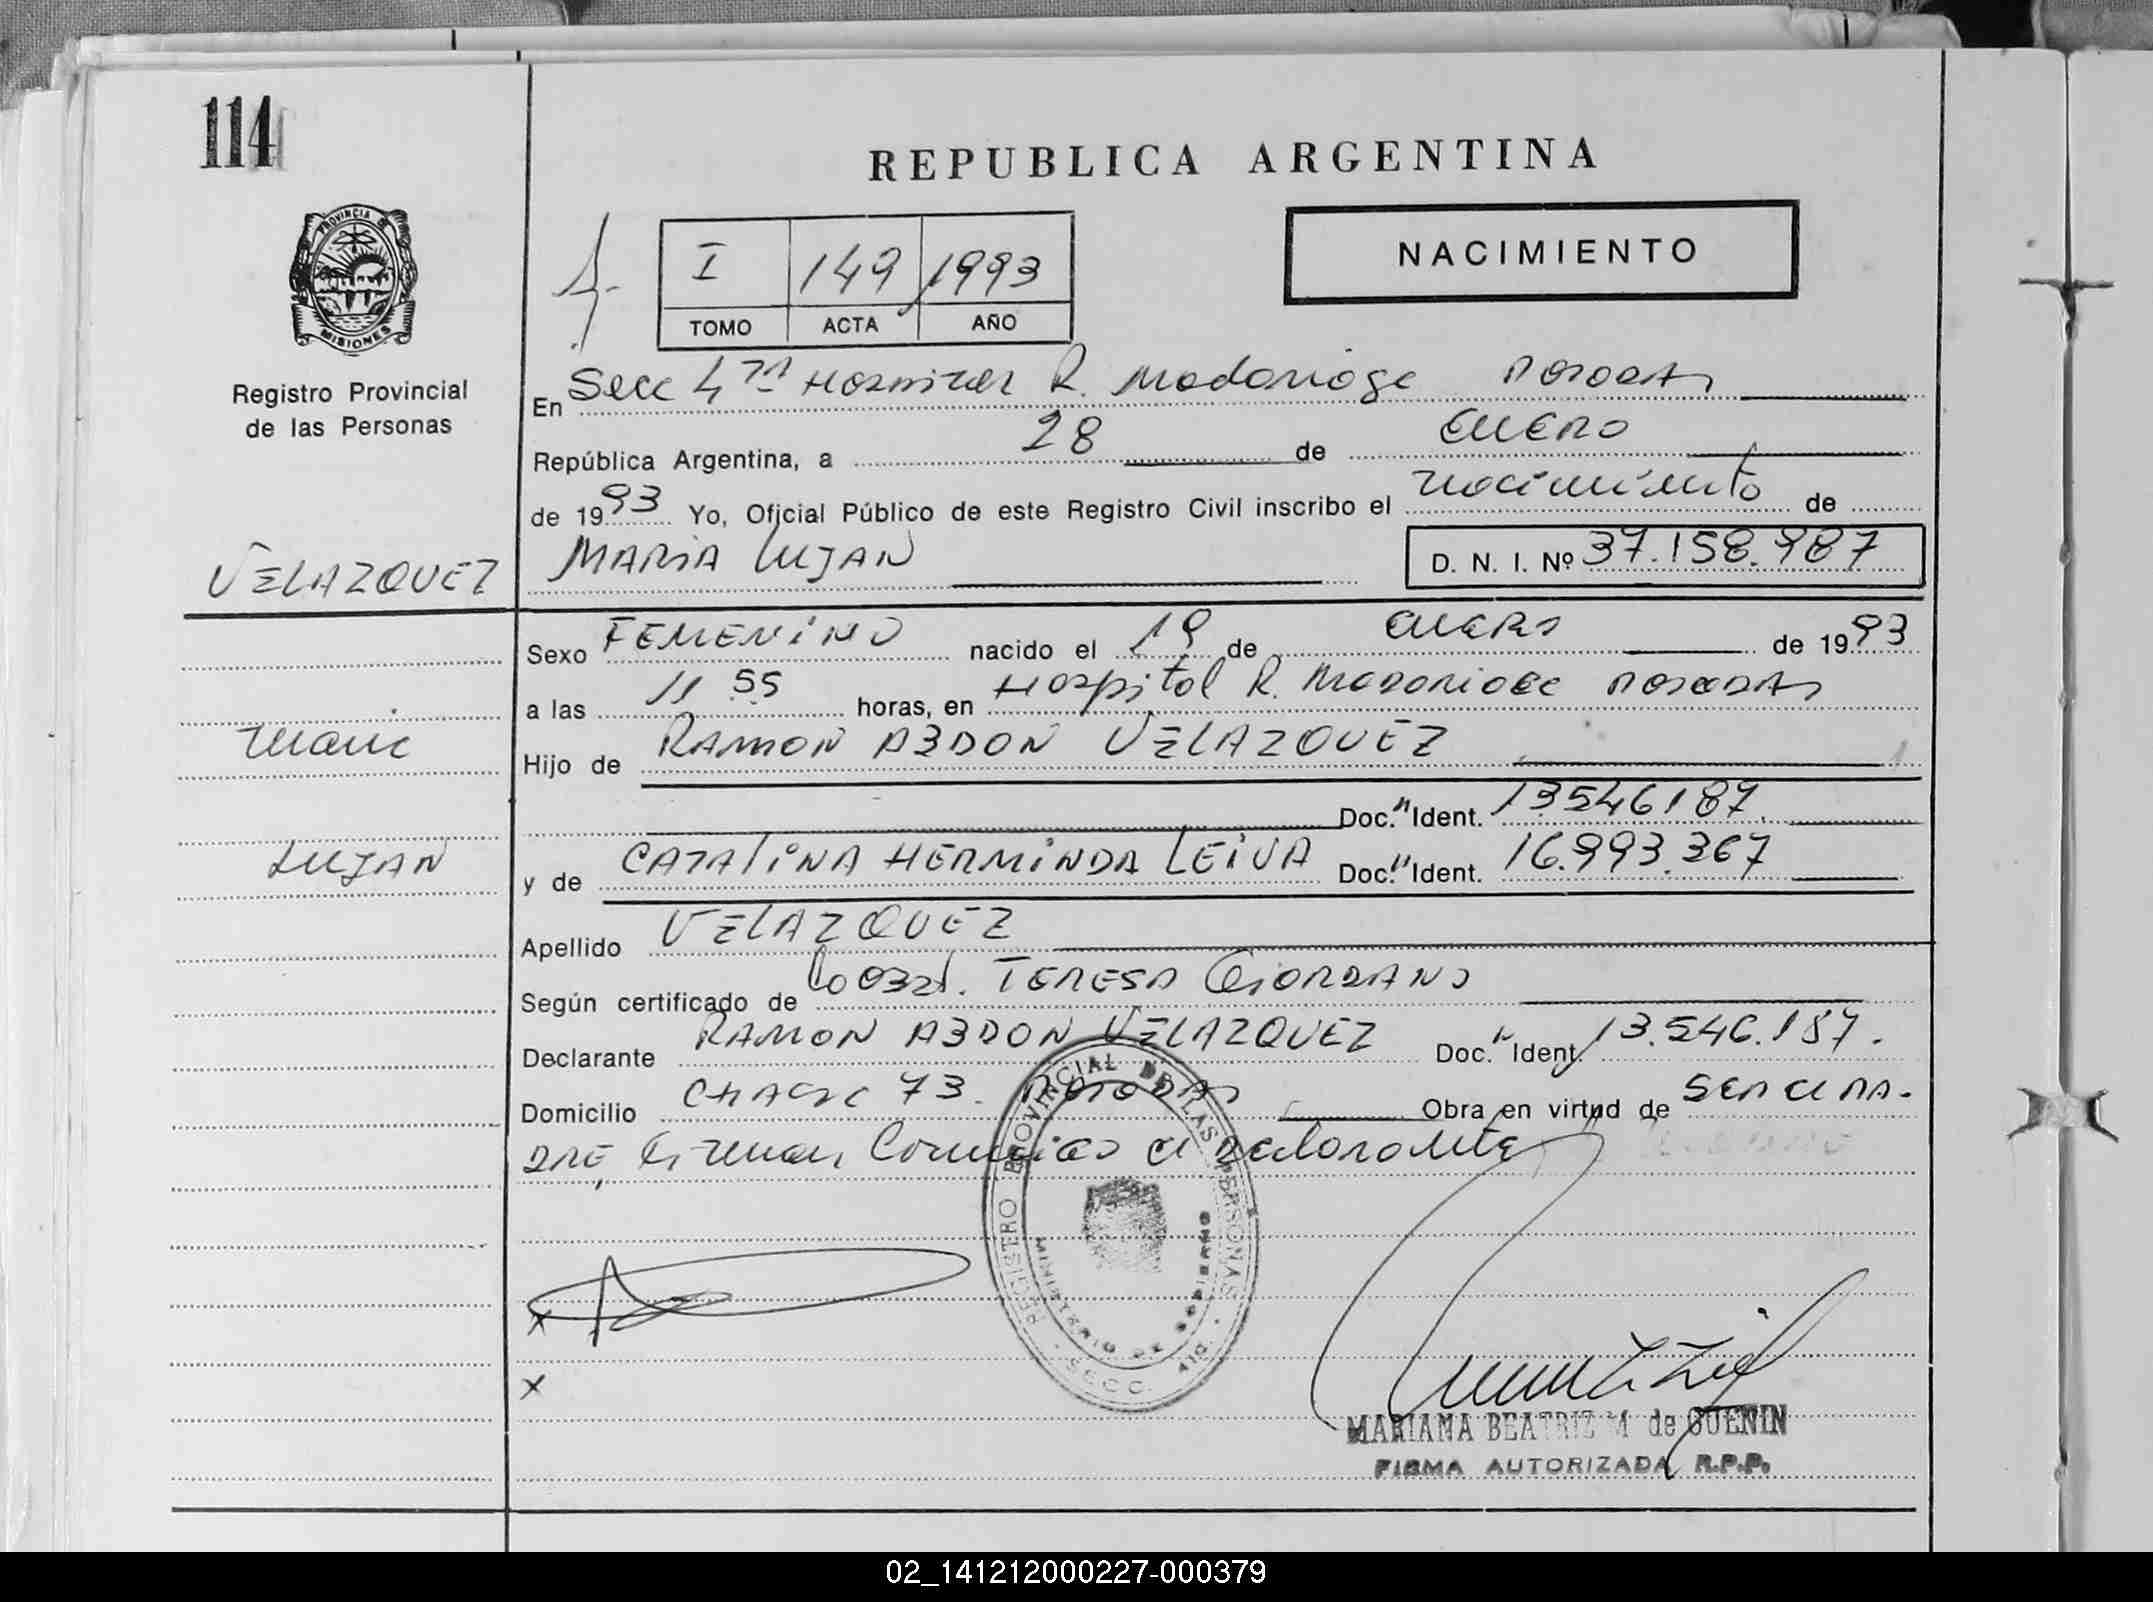 114
REPUBLICA ARGENTINA
PROVINCIA DE
MISIONES
I 149 1993
TOMO ACTA AÑO
NACIMIENTO
Registro Provincial
de las Personas
En Secc 4ta Hospital R. Madariaga Posadas
República Argentina, a 28 de ENERO
de 1993 Yo, Oficial Público de este Registro Civil inscribo el nacimiento de
VELAZQUEZ MARIA LUJAN D. N. I. Nº 37.158.987
Sexo FEMENINO nacido el 19 de ENERO de 1993
a las 11 55 horas, en Hospital R. Madariaga Posadas
Maria
Hijo de RAMON ABDON VELAZQUEZ
Doc. Ident. 13546187.
LUJAN
y de CATALINA HERMINDA LEIVA Doc. Ident. 16.993.367
Apellido VELAZQUEZ
Según certificado de Obst. TERESA GIORDANO
Declarante RAMON ABDON VELAZQUEZ Doc. Ident. 13.546.187.
Domicilio CHACRA 73. POSADAS Obra en virtud de SER EL PA-
DRE
declarante
REGISTRO PROVINCIAL DE LAS PERSONAS
MINISTERIO DE GOBIERNO
SECC. 4ta.
x
x
MARIANA BEATRIZ M de GUENIN
FIRMA AUTORIZADA R.P.P.
02_141212000227-000379